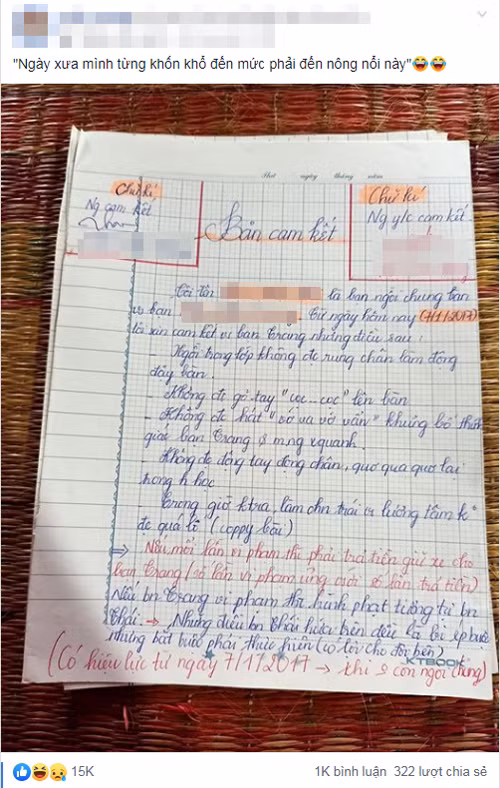 "Ngày xưa mình từng khốn khổ đến mức phải đến nông nổi này"😂😂
Thứ ngày tháng năm
Chữ kí
Ng cam kết
Chữ kí
Ng y/c cam kết
Bản cam kết
Tôi tên là bạn ngồi chung bàn
vs bạn Từ ngày hôm nay (7/1/2017)
tôi xin cam kết vs bạn Trang những điều sau:
- Ngồi trong lớp không đc rung chân làm động
đậy bàn.
- Không đc gõ tay "cọc_cọc" lên bàn
- Không đc hát "vớ va vớ vẩn" khủng bố thính
giác bạn Trang & m.ng x quanh.
- Không đc động tay động chân, quơ qua quơ lại
trong h học
- Trong giờ ktra, làm chn trái vs lương tâm k°
đc quá lố (coppy bài)
⇒ Nếu mỗi lần vi phạm thì phải trả tiền giữ xe cho
bạn Trang (số lần vi phạm ứng với số lần trả tiền)
Nếu bn Trang vi phạm thì hình phạt tương tự bn
Thái. → Những điều bn Thái hứa trên đều là bị ép buộc
nhưng bắt buộc phải thực hiện (có lợi cho đôi bên)
KTBOOK
(Có hiệu lực từ ngày 7/1/2017 → khi & còn ngồi chung)
15K
1K bình luận 322 lượt chia sẻ